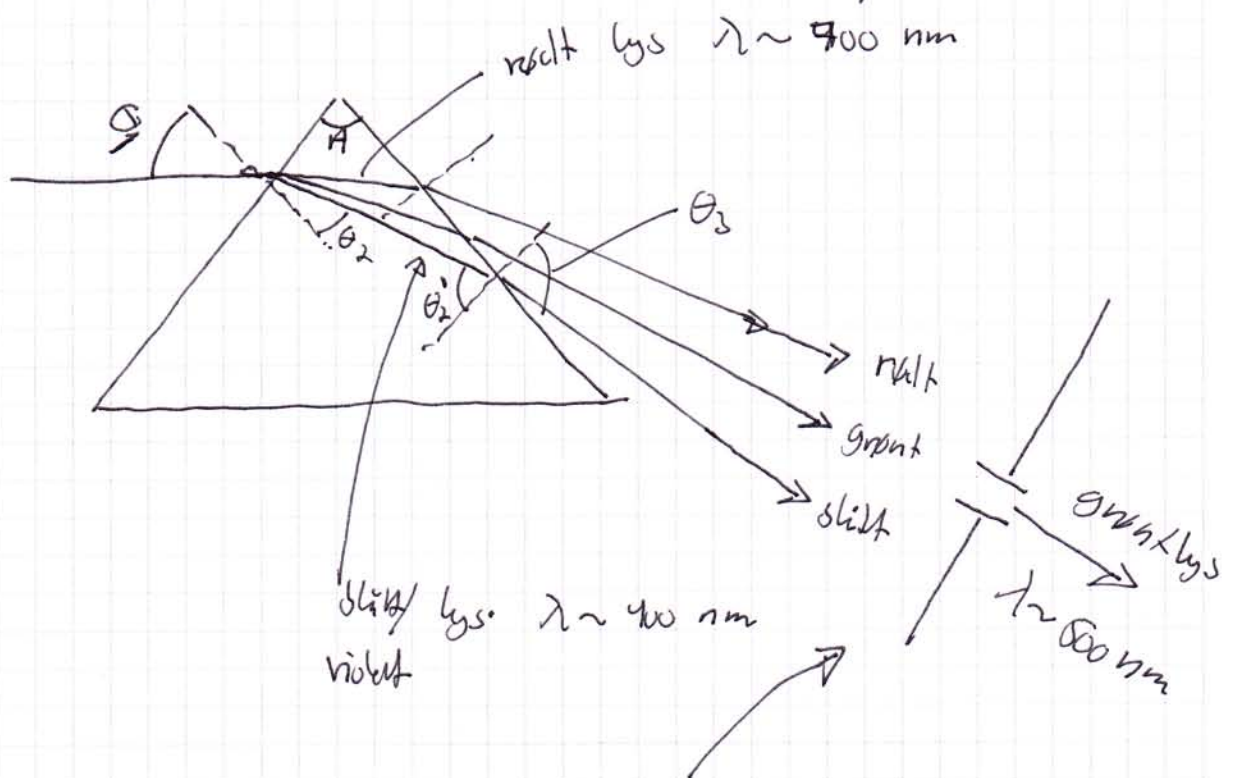 rødt lys λ ~ 700 nm
A
θ₂
θ₂'
θ₃
rødt
grønt
blått
blått/ lys. λ ~ 400 nm
violett
grønt lys
λ ~ 500 nm